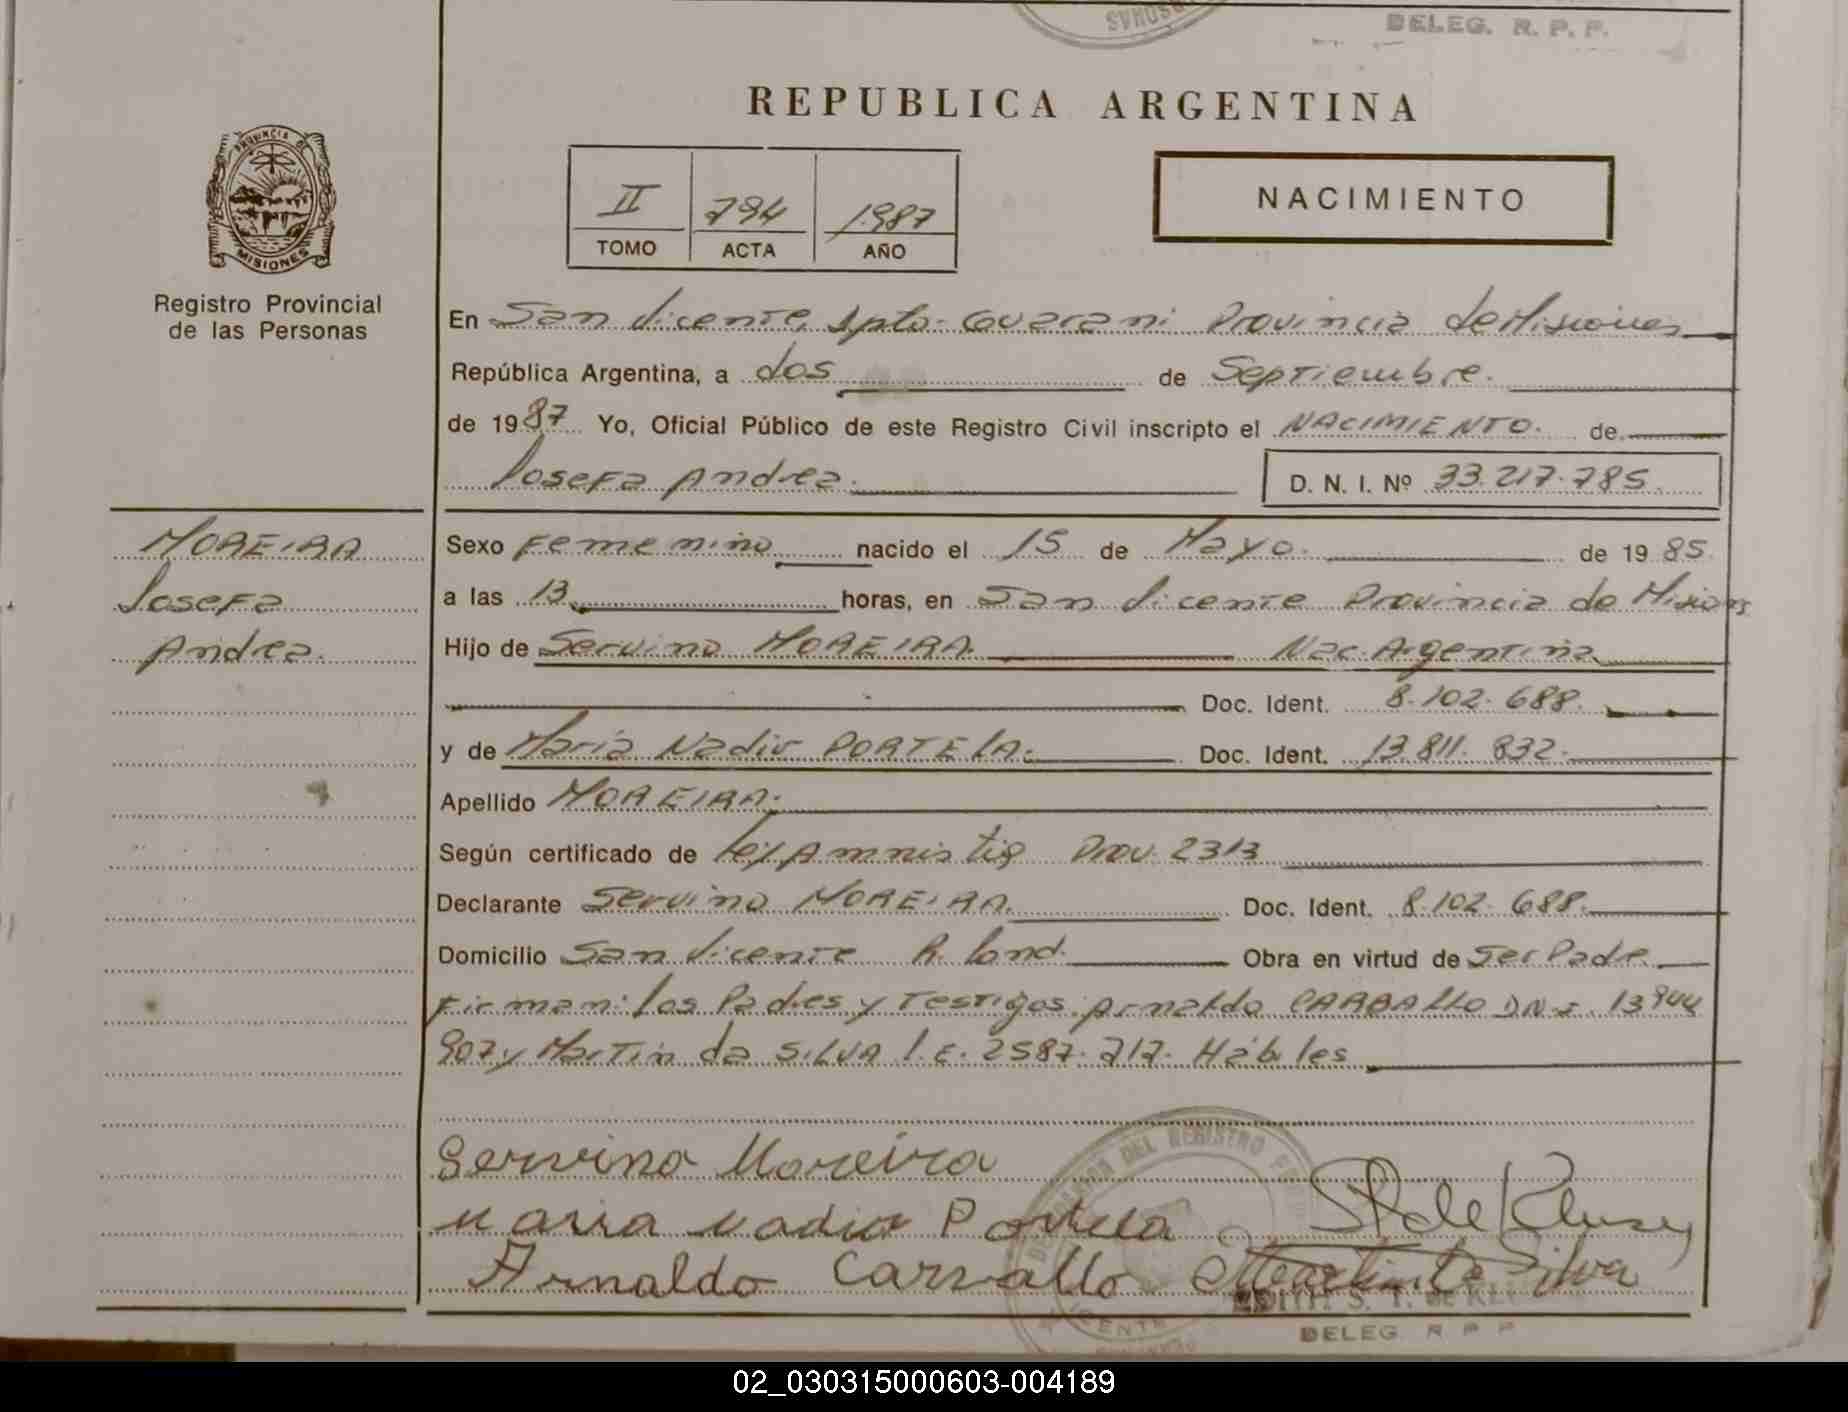 DELEG. R. P. P.
REPUBLICA ARGENTINA
PROVINCIA DE
MISIONES
Registro Provincial
de las Personas
II 794 1987
TOMO ACTA AÑO
NACIMIENTO
En San Vicente, Dpto. Guarani Provincia de Misiones
República Argentina, a dos de Septiembre.
de 1987 Yo, Oficial Público de este Registro Civil inscripto el NACIMIENTO. de
Josefa Andrea. D. N. I. Nº 33.217.785.
MOREIRA
Josefa
Andrea.
Sexo Femenino nacido el 15 de Mayo. de 1985.
a las 13 horas, en San Vicente Provincia de Misiones
Hijo de Servino MOREIRA. Nac. Argentina
Doc. Ident. 8.102.688.
y de Maria Nadir PORTELA. Doc. Ident. 13.811.832.
Apellido MOREIRA.
Según certificado de Ley Amnistia Prov. 2313
Declarante Servino MOREIRA. Doc. Ident. 8.102.688.
Domicilio San Vicente R. Cond. Obra en virtud de Ser Padre.
Firman: los Padres y Testigos: Arnaldo CARBALLO D.N.I. 13944
907 y Martin da SILVA L.E. 2587.717. Hábiles
Servino Moreira
Maria Nadir Portela
Arnaldo Carvallo Martin da Silva
DEL REGISTRO
EDITH S. T. de
DELEG. R P P
02_030315000603-004189